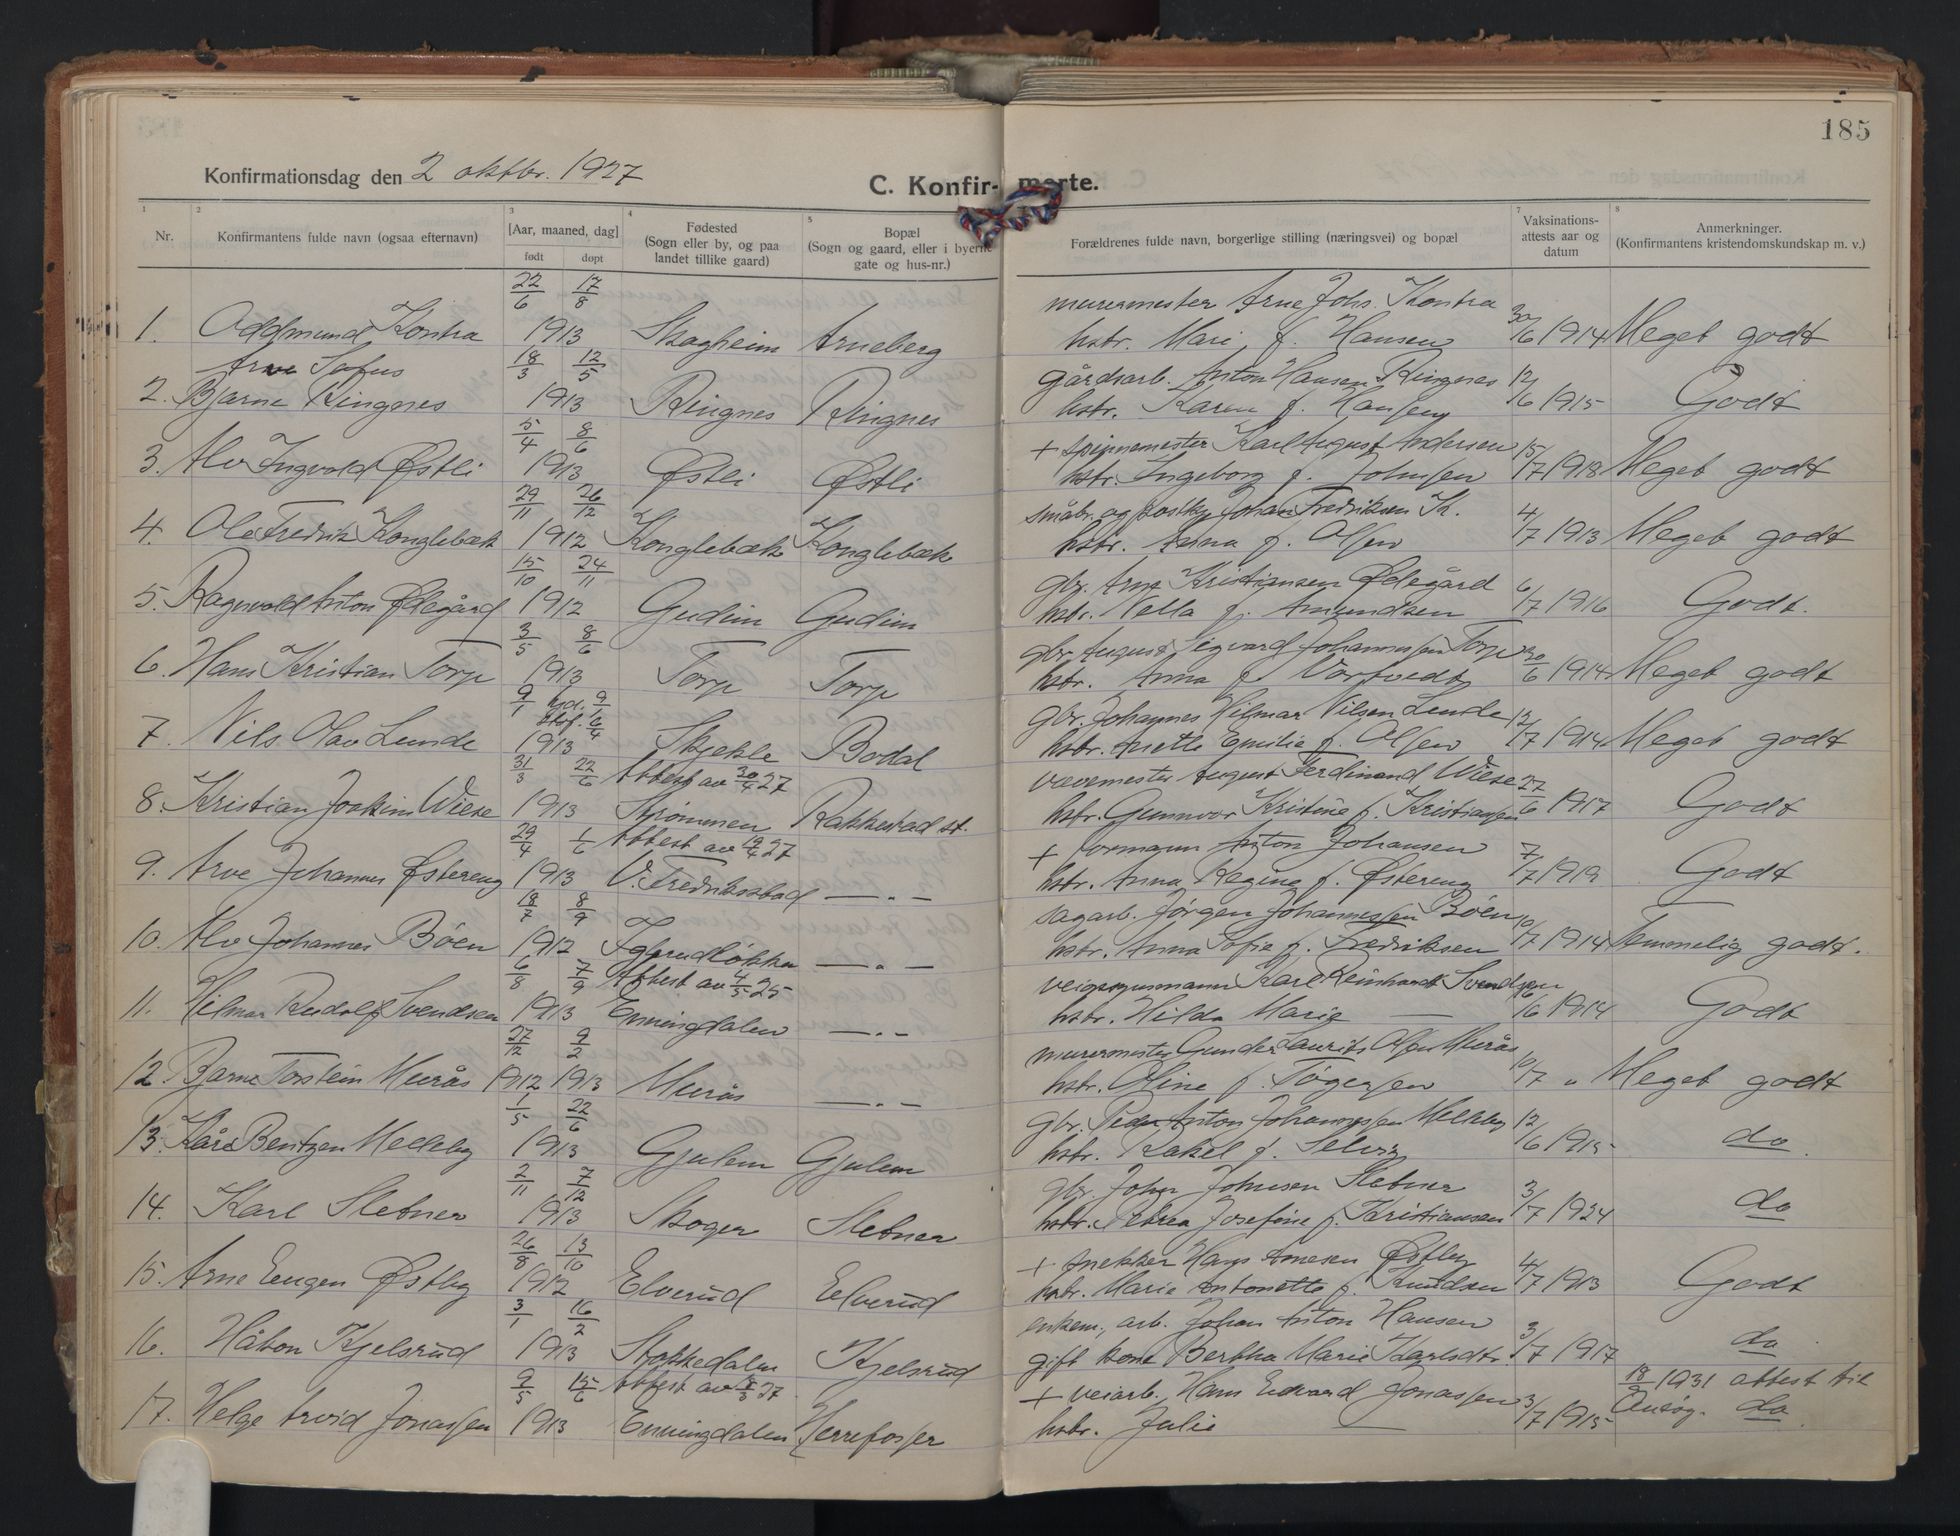 185
Konfirmationsdag den 2 oktbr. 1927
C. Konfir- merte.
1 2 3 4 5 7 8
Nr. Konfirmantens fulde navn (ogsaa efternavn) [Aar, maaned, dag] født døpt Fødested (Sogn eller by, og paa landet tillike gaard) Bopæl (Sogn og gaard, eller i byerne gate og hus-nr.) Forældrenes fulde navn, borgerlige stilling (næringsvei) og bopæl Vaksinations-attests aar og datum Anmerkninger. (Konfirmantens kristendomskundskap m. v.)
22/6 17/8 murermester Arne Johs. Kontra
1. Oddmund Kontra 1913 Skogheim Arneberg hstr. Mari f. Hansen 30/6 1914 Meget godt
Arve Sofus 18/3 12/5 gårdsarb. Anton Hansen Ringnes
2. Bjarne Ringnes 1913 Ringnes Ringnes hstr. Karen f. Hansen 12/6 1915 Godt
5/4 8/6 + spinnemester Karl August Andersen
3. Alv Ingvald Østli 1913 Østli Østli hstr. Ingeborg f. Johnsen 15/7 1918 Meget godt
29/11 26/12 småbr. og postkj. Johan Fredriksen K.
4. Ole Fredrik Konglebæk 1912 Konglebæk Konglebæk hstr. Anna f. Olsen 4/7 1913 Meget godt
15/10 24/11 gbr. Arne Kristiansen Ødegård
5. Ragnvald Anton Ødegård 1912 Gudim Gudim hstr. Nella f. Amundsen 6/7 1916 Godt.
3/5 8/6 gbr. August Sigvard Johannessen Torp
6. Hans Kristian Torp 1913 Torp Torp hstr. Anna f. 30/6 1914 Meget godt
9/1 9/1 gbr. Johannes Hilmar Nilsen Lunde
7. Nils Olav Lunde 1913 Skjekle Bodal hstr. Anette Emilie f. Olsen 12/7 1914 Meget godt
31/3 22/6 Attest av 30/4 27 vævemester August Ferdinand Wiese
8. Kristian Joakim Wiese 1913 Strømmen Rakkestad st. hstr. Gunnvor Kristine f. Kristiansen 27/6 1917 Godt
29/4 1/6 Attest av 19/4 27 + formann Anton Johansen
9. Arve Johannes Østereng 1913 V. Fredriksstad — „ — hstr. Anna Regine f. Østereng 7/7 1919 Godt
18/7 8/9 sagarb. Jørgen Johannessen Böen
10. Alv Johannes Böen 1912 — „ — hstr. Anna Sofie f. Fredriksen 10/7 1914 Temmelig godt.
6/8 7/9 Attest av 4/5 25 Karl Reinhardt Svendsen
11. Hilmar Rudolf Svendsen 1913 Enningdalen — „ — hstr. Hilda Marie — 16/6 1914 Godt
27/12 9/2 murermester Gunder Laurits Olsen Murås
12. Bjarne Torstein Murås 1912 1913 Murås — „ — hstr. Oline f. Tögersen 10/7 „ Meget godt
1/5 22/6 gbr. Peder Anton Johannessen Melleby
13. Kåre Bentzen Melleby 1913 Gjulem Gjulem hstr. Rakel f. Selvig 12/6 1915 do.
2/11 7/12 gbr. Johan Johnsen Sletner
14. Karl Sletner 1913 Skoger Sletner hstr. Petrea Josefine f. Kristiansen 3/7 1924 do
26/8 13/10 + snekker Hans Arnesen Østby
15. Arne Eugen Østby 1912 Elverud Elverud hstr. Marie Antonette f. Knudsen 4/7 1913 Godt
3/1 16/2 enkem., arb. Johan Anton Hansen
16. Håkon Kjelsrud 1913 Stokkedalen Kjelsrud gift kone Bertha Marie Karlsdtr. 3/7 1917 do
9/5 15/6 Attest av 27 + veiarb. Hans Edvard Jonassen 18/8 1931 attest til
17. Helge Arvid Jonassen 1913 Enningdalen Herrefosser hstr. Julie — 3/7 1915 Ansøg. do